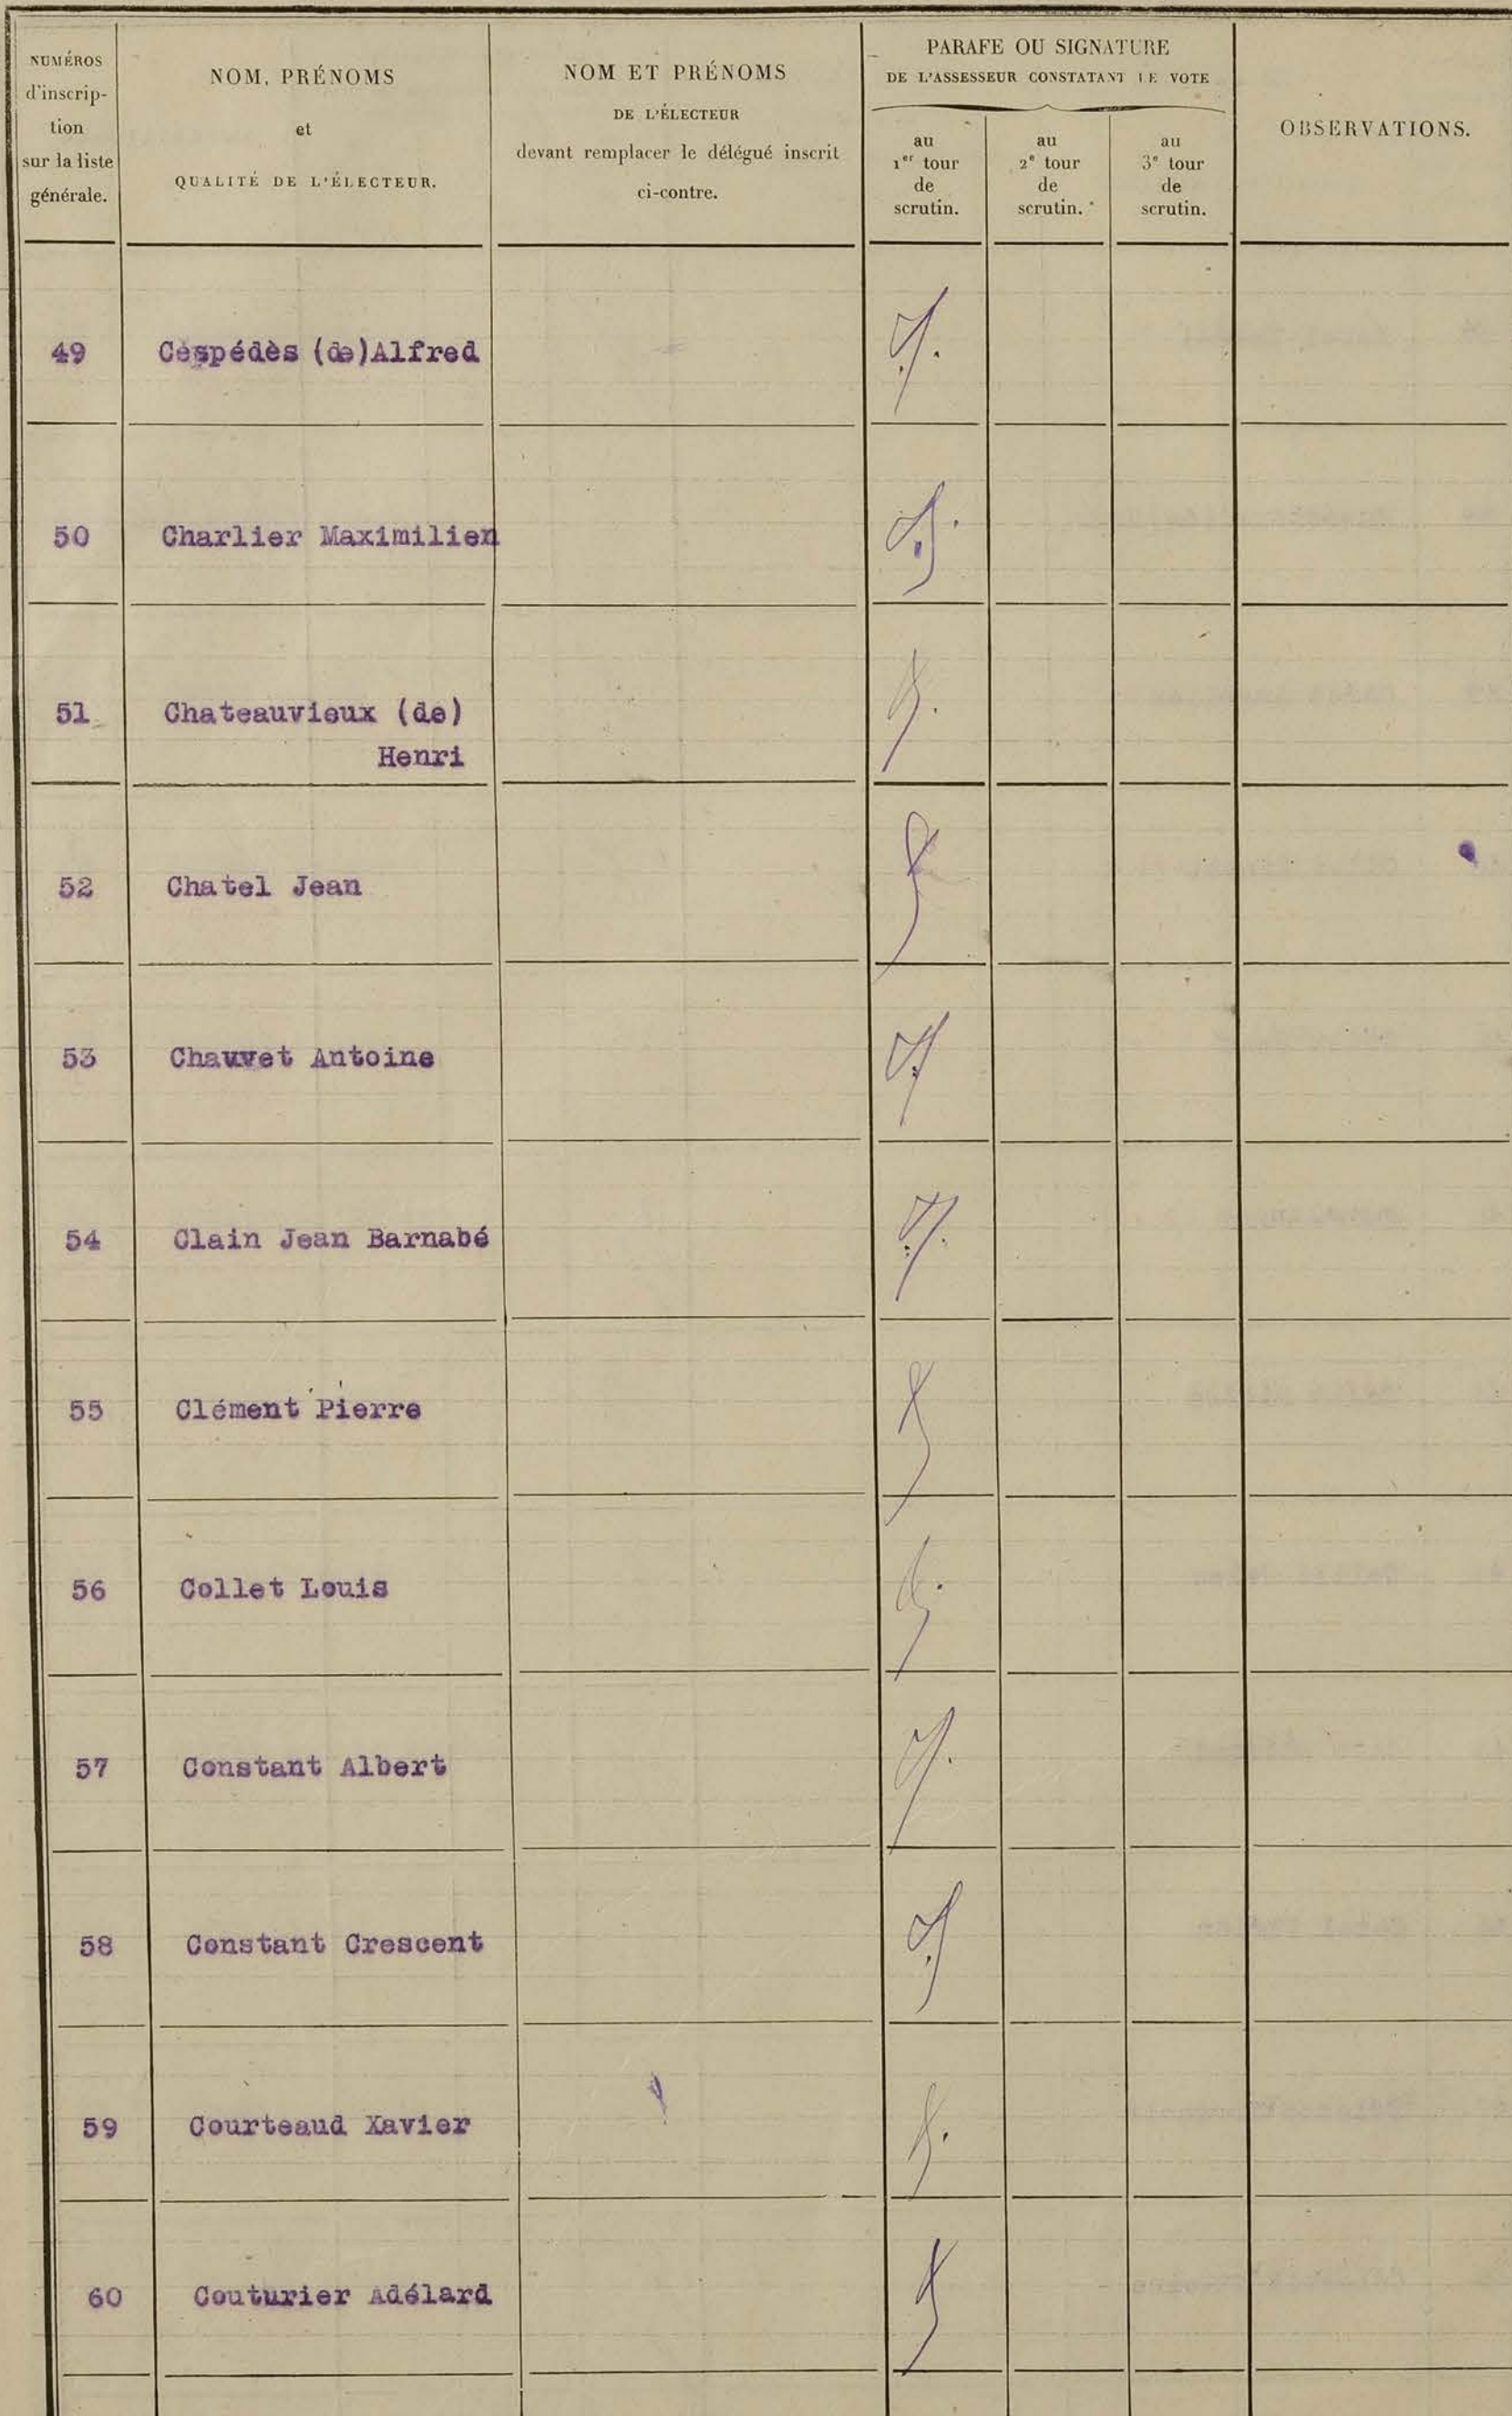 NUMÉROS
d'inscrip-
tion
sur la liste
générale.
NOM, PRÉNOMS
et
QUALITÉ DE L'ÉLECTEUR.
NOM ET PRÉNOMS
DE L'ÉLECTEUR
devant remplacer le délégué inscrit
ci-contre.
PARAFE OU SIGNATURE
DE L'ASSESSEUR CONSTATANT LE VOTE
au
1er tour
de
scrutin.
au
2e tour
de
scrutin.
au
3e tour
de
scrutin.
OBSERVATIONS.
49 Céspédès (de)Alfred
50 Charlier Maximilien
51 Chateauvieux (de)
Henri
52 Chatel Jean
53 Chauvet Antoine
54 Clain Jean Barnabé
55 Clément Pierre
56 Collet Louis
57 Constant Albert
58 Constant Crescent
59 Courteaud Xavier
60 Couturier Adélard